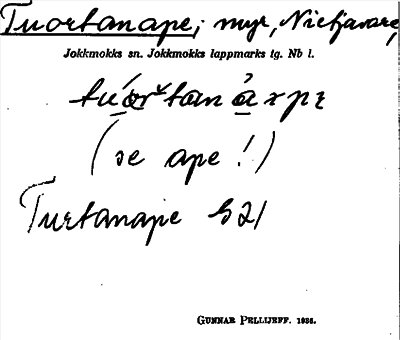 Tuortanape; myr, Nietjavare,
Jokkmokks sn. Jokkmokks lappmarks tg. Nb l.
(se ape!)
Turtanape S 21
GUNNAR PELLIJEFF. 1938.